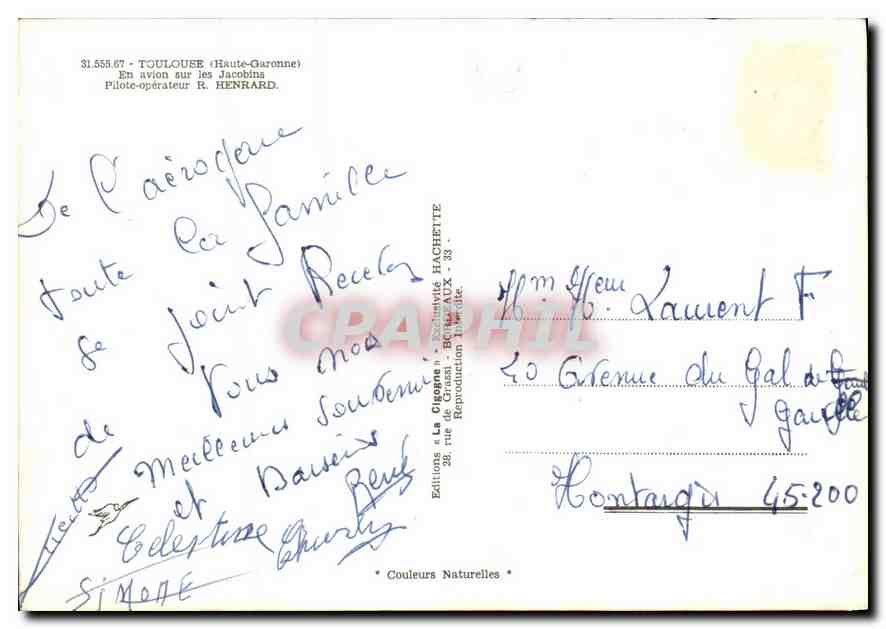 31.555.67 - TOULOUSE (Haute-Garonne)
En avion sur les Jacobins
Pilote-opérateur R. HENRARD.
De l'aérogare
toute la famille
se joint
de vous nos
Meilleurs Souvenirs
et Baisers
René
Celestine Charly
SiMONE
Editions « La Cigogne » - Exclusivité HACHETTE
28, rue de Grassi - BORDEAUX - 33 -
Reproduction Interdite.
CPAPHIL
Mr Laurent F
20 Avenue du Gal de
Gaulle
Montargis 45-200
* Couleurs Naturelles *